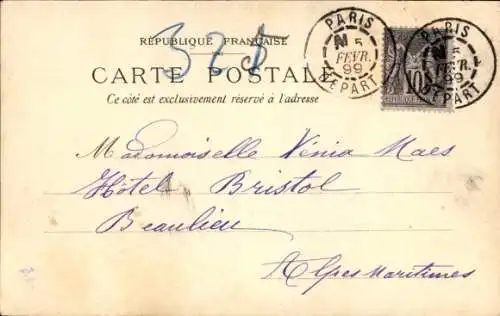 325
RÉPUBLIQUE FRANÇAISE
CARTE POSTALE
Ce côté est exclusivement réservé à l'adresse
PARIS
5
FÉVR.
99
DÉPART
10
PARIS
5
FÉVR.
99
DÉPART
Mademoiselle Xénia Maes
Hôtel Bristol
Beaulieu
Alpes Maritimes